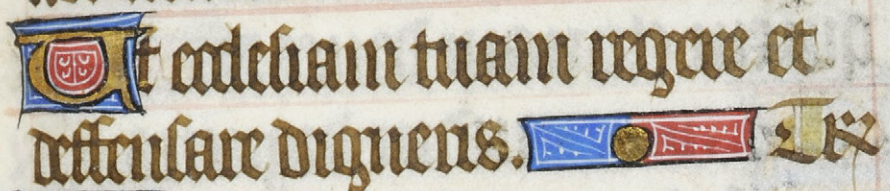 Ut ecclesiam tuam regere et
deffensare digneris. Te